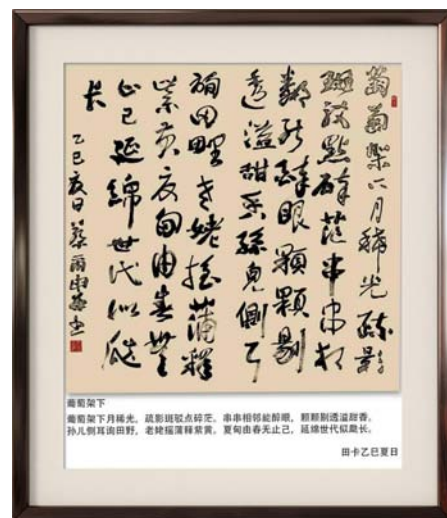 葡萄架下月稀光疏影
斑駁點碎茫串串相
鄰能醉眼顆顆剔
透溢甜香孫兒側耳
詢田野老姥摇蒲釋
紫黄夏甸由春無
止己延綿世代似
長
乙巳夏日
葡萄架下
葡萄架下月稀光，疏影斑驳点碎茫，串串相邻能醉眼，颗颗剔透溢甜香，
孙儿侧耳询田野，老姥摇蒲释紫黄，夏甸由春无止己，延绵世代似长。
田卡乙巳夏日